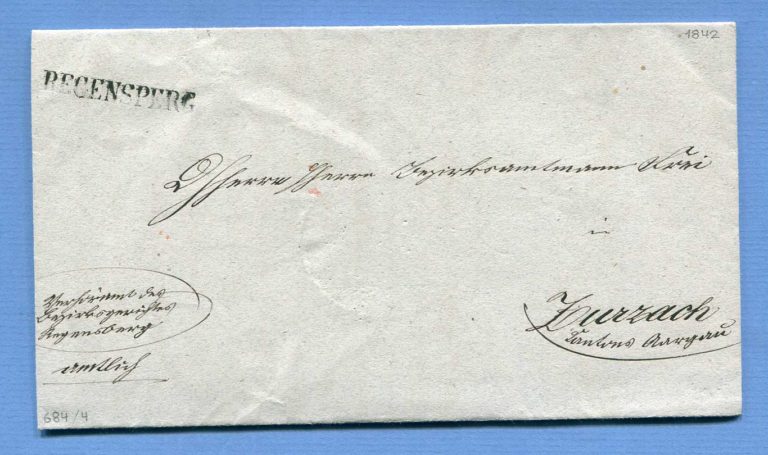 1842
REGENSPERG
Herrn Herrn Bezirksamtmann Frei
in
Zurzach
Kantons Aargau
Verhöramt des
Bezirksgerichtes
Regensberg
amtlich
684/4